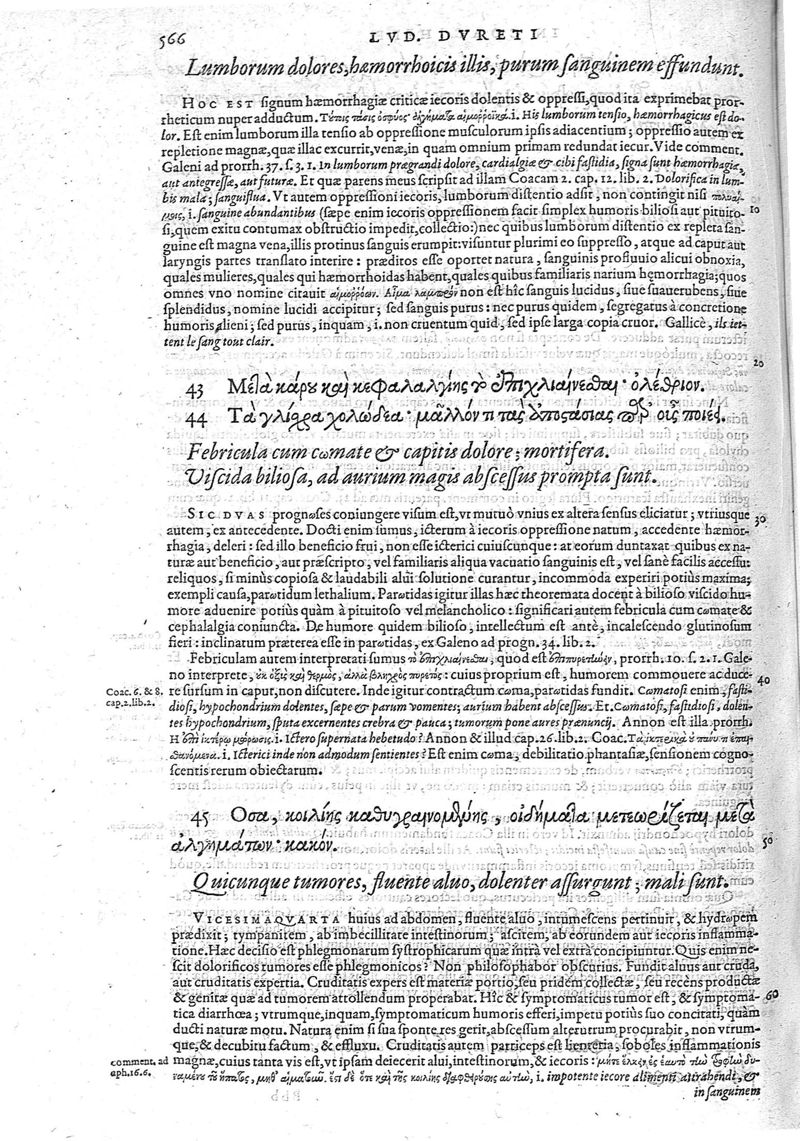 566
LVD. DVRETI
Lumborum dolores, hæmorrhoicis illis, purum sanguinem effundunt.
HOC EST signum hæmorrhagiæ criticæ iecoris dolentis & oppressi, quod ita exprimebat pror-
rheticum nuper adductum. i. His lumborum tensio, hæmorrhagicus est do-
lor. Est enim lumborum illa tensio ab oppressione musculorum ipsis adiacentium; oppressio autem ex
repletione magnæ, quæ illac excurrit, venæ, in quam omnium primam redundat iecur. Vide comment.
Galeni ad prorrh. 37. s. 3. 1. In lumborum prægrandi dolore, cardialgiæ & cibi fastidia, signa sunt hæmorrhagiæ,
aut antegressæ, aut futuræ. Et quæ parens meus scripsit ad illam Coacam 2. cap. 12. lib. 2. Dolorifica in lum-
bis mala; sanguiflua. Vt autem oppressioni iecoris, lumborum distentio adsit, non contingit nisi πολυαί-
μοις, i. sanguine abundantibus (sæpe enim iecoris oppressionem facit simplex humoris biliosi aut pituito-
10
si, quem exitu contumax obstructio impedit, collectio:) nec quibus lumborum distentio ex repleta san-
guine est magna vena, illis protinus sanguis erumpit: visuntur plurimi eo suppresso, atque ad caput aut
laryngis partes translato interire: præditos esse oportet natura, sanguinis profluuio alicui obnoxia,
quales mulieres, quales qui hæmorrhoidas habent, quales quibus familiaris narium hęmorrhagia; quos
omnes vno nomine citauit αἱμοῤῥόων. Αἷμα λαμπρὸν non est hîc sanguis lucidus, siue suauerubens, siue
splendidus, nomine lucidi accipitur; sed sanguis purus: nec purus quidem, segregatus à concretione
humoris alieni; sed purus, inquam, i. non cruentum quid, sed ipse larga copia cruor. Gallicè, ils iet-
tent le sang tout clair.
20
43 Μετὰ κάρου καὶ κεφαλαλγίης τὸ ἐπιχλιαίνεσθαι· ὀλέθριον.
44 Τὰ γλίσχρα χολώδεα· μᾶλλόν τι τὰς ἀποστάσιας παρ' οὖς ποιέει.
Febricula cum comate & capitis dolore; mortifera.
Viscida biliosa, ad aurium magis abscessus prompta sunt.
SIC DVAS prognωses coniungere visum est, vt mutuò vnius ex altera sensus eliciatur; vtriusque
30
autem, ex antecedente. Docti enim sumus, icterum à iecoris oppressione natum, accedente hæmor-
rhagia, deleri: sed illo beneficio frui, non esse icterici cuiuscunque: at eorum duntaxat quibus ex na-
turæ aut beneficio, aut præscripto, vel familiaris aliqua vacuatio sanguinis est, vel sanè facilis accessu:
reliquos, si minùs copiosa & laudabili alui solutione curantur, incommoda experiri potiùs maxima;
exempli causa, parωtidum lethalium. Parωtidas igitur illas hæc theoremata docent à bilioso viscido hu-
more aduenire potiùs quàm à pituitoso vel melancholico: significari autem febricula cum cωmate &
cephalalgia coniuncta. De humore quidem bilioso, intellectum est antè, incalescendo glutinosum
fieri: inclinatum præterea esse in parωtidas, ex Galeno ad progn. 34. lib. 2.
Febriculam autem interpretati sumus τὸ ἐπιχλιαίνεσθαι, quod est prorrh. 10. s. 2. 1. Gale-
no interprete, cuius proprium est, humorem commouere ac duce-
40
Coac. 6. & 8.
cap. 2. lib. 2.
re sursum in caput, non discutere. Inde igitur contractum cωma, parωtidas fundit. Cωmatosi enim, fasti-
diosi, hypochondrium dolentes, sæpe & parum vomentes; aurium habent abscessus. Et. Cωmatosi, fastidiosi, dolen-
tes hypochondrium, sputa excernentes crebra & pauca; tumorum pone aures prænuncij. Annon est illa prorrh.
i. Ictero supernata hebetudo? Annon & illud cap. 26. lib. 2. Coac.
i. Icterici inde non admodum sentientes? Est enim cωma, debilitatio phantasiæ, sensionem cogno-
scentis rerum obiectarum.
45 Οσα, κοιλίης καθυγραινομένης, οἰδήματα μετεωρίζεται μετὰ
ἀλγημάτων· κακόν.
50
Quicunque tumores, fluente aluo, dolenter assurgunt; mali sunt.
VICESIMAQVARTA huius ad abdomen, fluente aluo, intumescens pertinuit, & hydrωpem
prædixit; tympaniten, ab imbecillitate intestinorum; ascitem, ab eorundem aut iecoris inflamma-
tione. Hæc decisio est phlegmonarum systrophicarum quæ intra vel extra concipiuntur. Quis enim ne-
scit dolorificos tumores esse phlegmonicos? Non philosophabor obscutius. Fundit aluus aut cruda,
aut cruditatis expertia. Cruditatis expers est materiæ portio, seu pridem collectæ, seu recens productæ
& genitæ quæ ad tumorem attollendum properabat. Hîc & symptomaticus tumor est, & symptoma-
60
tica diarrhœa; vtrumque, inquam, symptomaticum humoris efferi, impetu potiùs suo concitati, quàm
ducti naturæ motu. Natura enim si sua sponte res gerit, abscessum alterutrum procurabit, non vtrum-
que, & decubitu factum, & effluxu. Cruditatis autem particeps est lienteria, soboles inflammationis
comment. ad
aph. 16. 6.
magnæ, cuius tanta vis est, vt ipsam deiecerit alui, intestinorum, & iecoris: i. impotente iecore alimenti attrahendi, &
in sanguinem